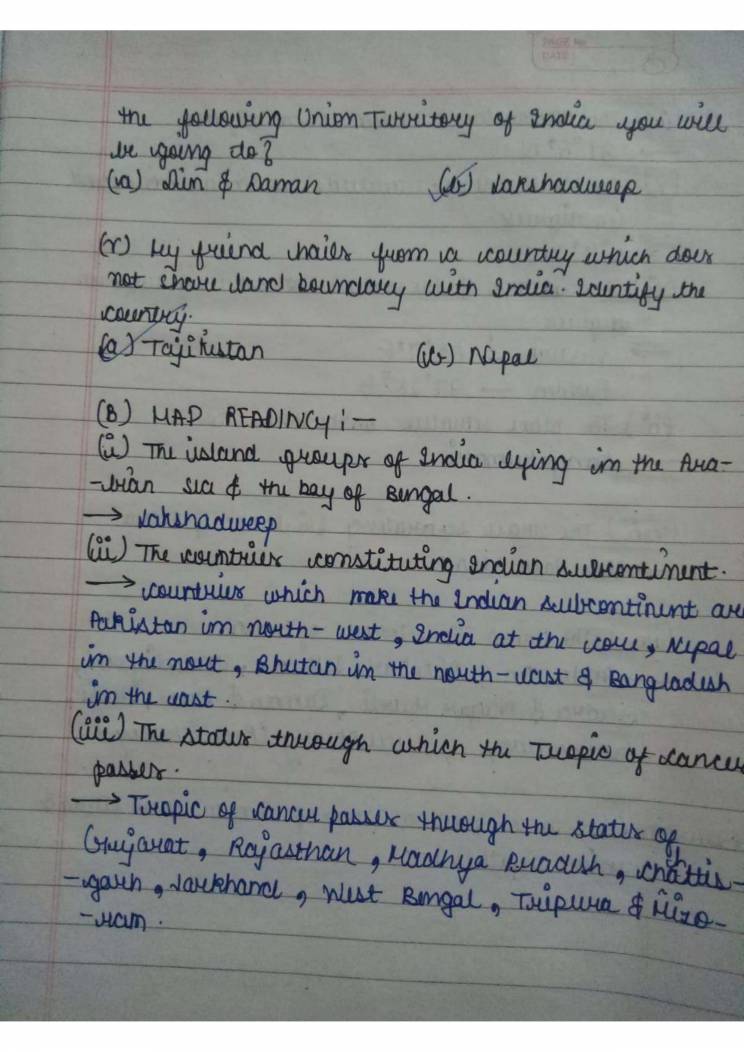 the following Union Territory of India you will
be going do?
(a) Diu & Daman (b) Lakshadweep
(x) My friend hails from a country which does
not share land boundary with India. Identify the
country.
(a) Tajikistan (b) Nepal
(B) MAP READING :-
(i) The island groups of India lying in the Ara-
-bian sea & the bay of Bengal.
→ Lakshadweep
(ii) The countries constituting Indian subcontinent.
→ countries which make the Indian subcontinent are
Pakistan in north-west, India at the core, Nepal
in the nort, Bhutan in the north-east & Bangladesh
in the east.
(iii) The states through which the Tropic of cancer
passes.
→ Tropic of cancer passes through the states of
Gujarat, Rajasthan, Madhya Pradesh, Chattis-
-garh, Jarkhand, West Bengal, Tripura & Mizo-
-ram.